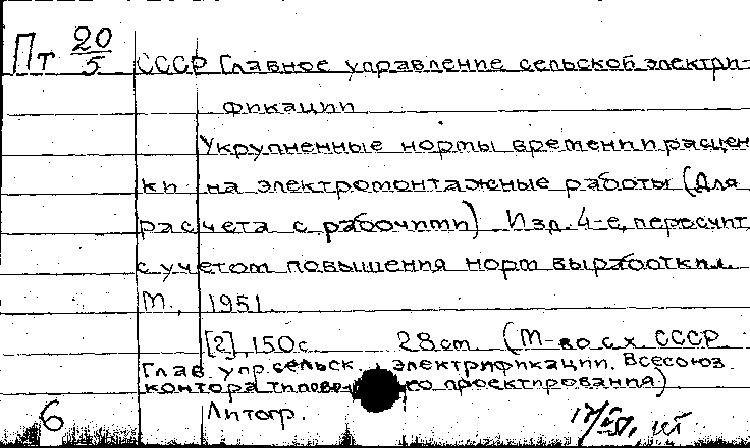 Пт 20/5
СССР Главное управление сельской электри-
фикации
Укрупненные нормы времени и расцен
ки на электромонтажные работы (Для
расчета с рабочими) Изд. 4-е, пересчит
с учетом повышения норм выработки.
М., 1951.
[2], 150 с. 28 см. (М-во с.х. СССР
Глав. упр. сельск. электрификации. Всесоюз.
контора типово го проектирования)
6 Литогр.